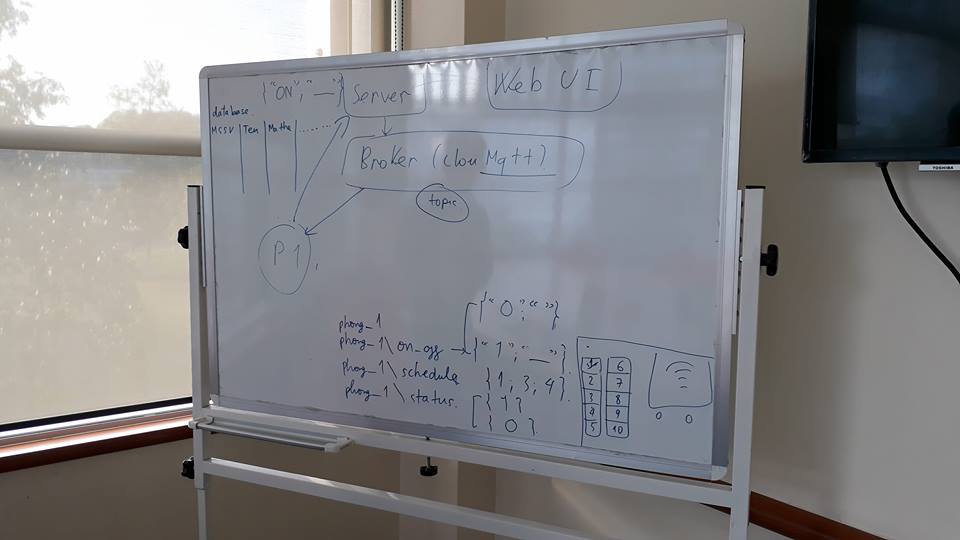 {"ON", "__"}
Server
Web UI
database
MSSV | Ten | Ma the | ........
Broker (clou Mqtt)
topic
P1,
phong_1
phong_1\on_off
{"0"; " "}
{"1"; "__"}
phong_1\schedule
{1; 3; 4}.
phong_1\status.
{1}
{0}
1 6
2 7
3 8
4 9
5 10
TOSHIBA